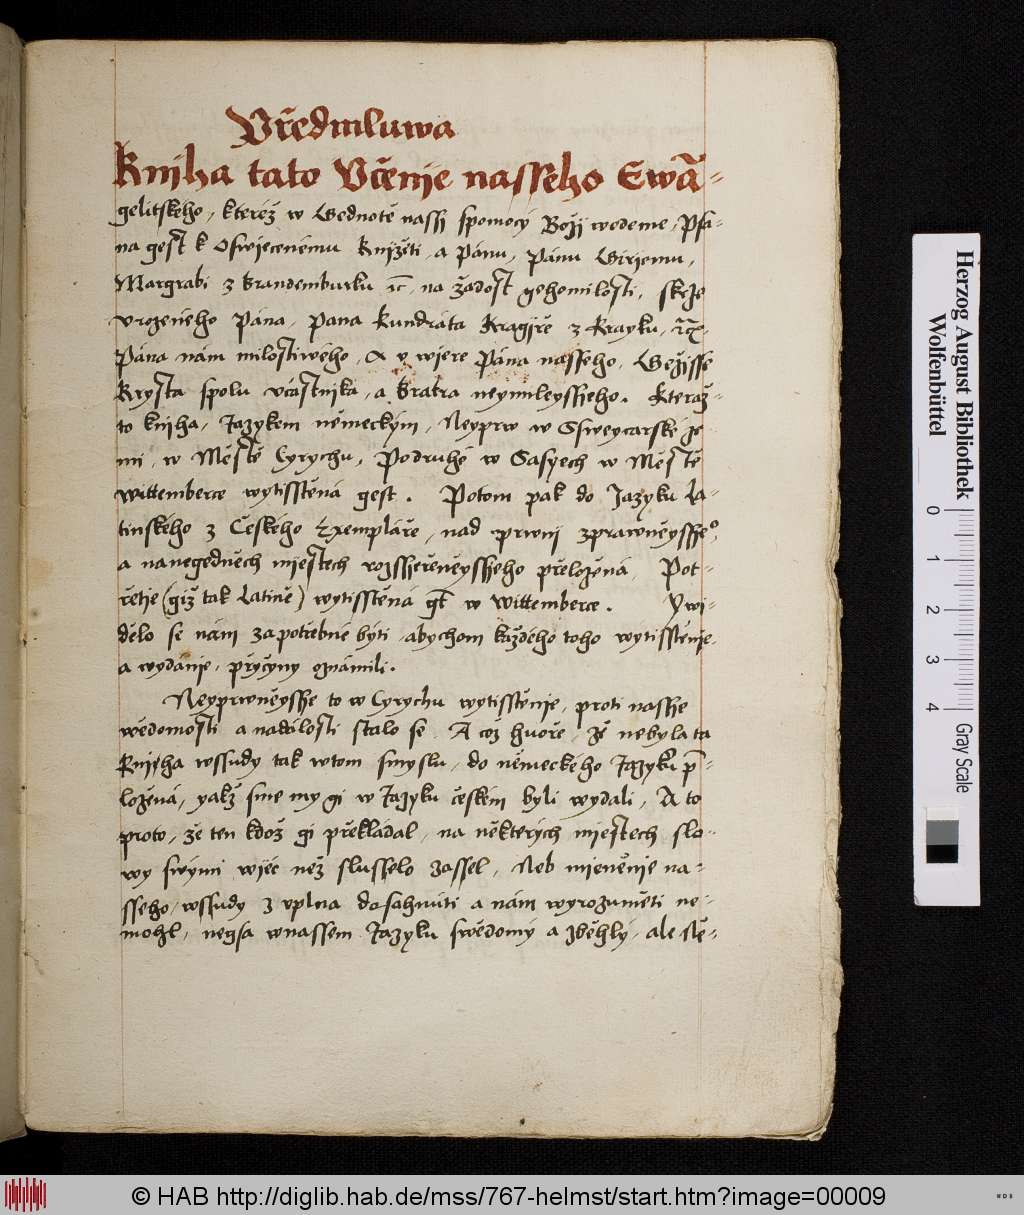 Předmluwa
Kniha tato Včenie nasseho Ewā-
gelitskeho, kteréž w Gednotě nassj spomocý Božj wedeme, Psa-
na gest k Oswjecenému Knjžěti, a Pánu, Pánu Girzjemu,
Margrabi z Brandemburku ꝛc̄, na žádost gehomilosti, skrze
vrozeného Pána, Pana Kundráta Kragjře z Krayku, ꝛc̄.
Pána nám milostiwého, A v wjere Pána nasseho, Gežjsse
Krysta spolu včastnika, a bratra neymileyssieho. Kteráž-
to kniha, Jazykem německým, Neyprw w Sſweycarské ze
mi, w Městě Cyrychu, Podruhé w Sasýech w Městě
Wittemberce wytisstěná gest. Potom pak do Jazyku La-
tinského z Českého Exemplaře, nad prwnj zprawněyssie°,
a nanegedněch mjestech rozssjeřeněyssjeho přeložená, Pot-
řetie (giž tak Latině) wytisstěná gt̄ w Wittemberce. Vwi-
dělo se nám zapotřebné býti abychom každého toho wytisstěnie,
a wydánie, přýčyny oznámili.
Neyprwněysse to w Cyrychu wytisstěnie, proti nassie
wědomosti a nadálosti stálo se. A což huoře, že nebyla ta
Knieha wssudy tak wtom smyslu, do německého Jazyku p̄-
ložená, yakž sme my gi w Jazyku českém byli wydali, A to
proto, že ten kdož gi překládal, na některých mjestech slo-
wy swými wjéc než slusselo zassel, Neb mienenie na-
sseho, wssudy z vplna dosahnúti a nám wyrozuměti ne-
mohl, negsa wnassem Jazyku swědomý a zběhlý, ale slě-
Herzog August Bibliothek
Wolfenbüttel
0 1 2 3 4
Gray Scale
© HAB http://diglib.hab.de/mss/767-helmst/start.htm?image=00009
WDB